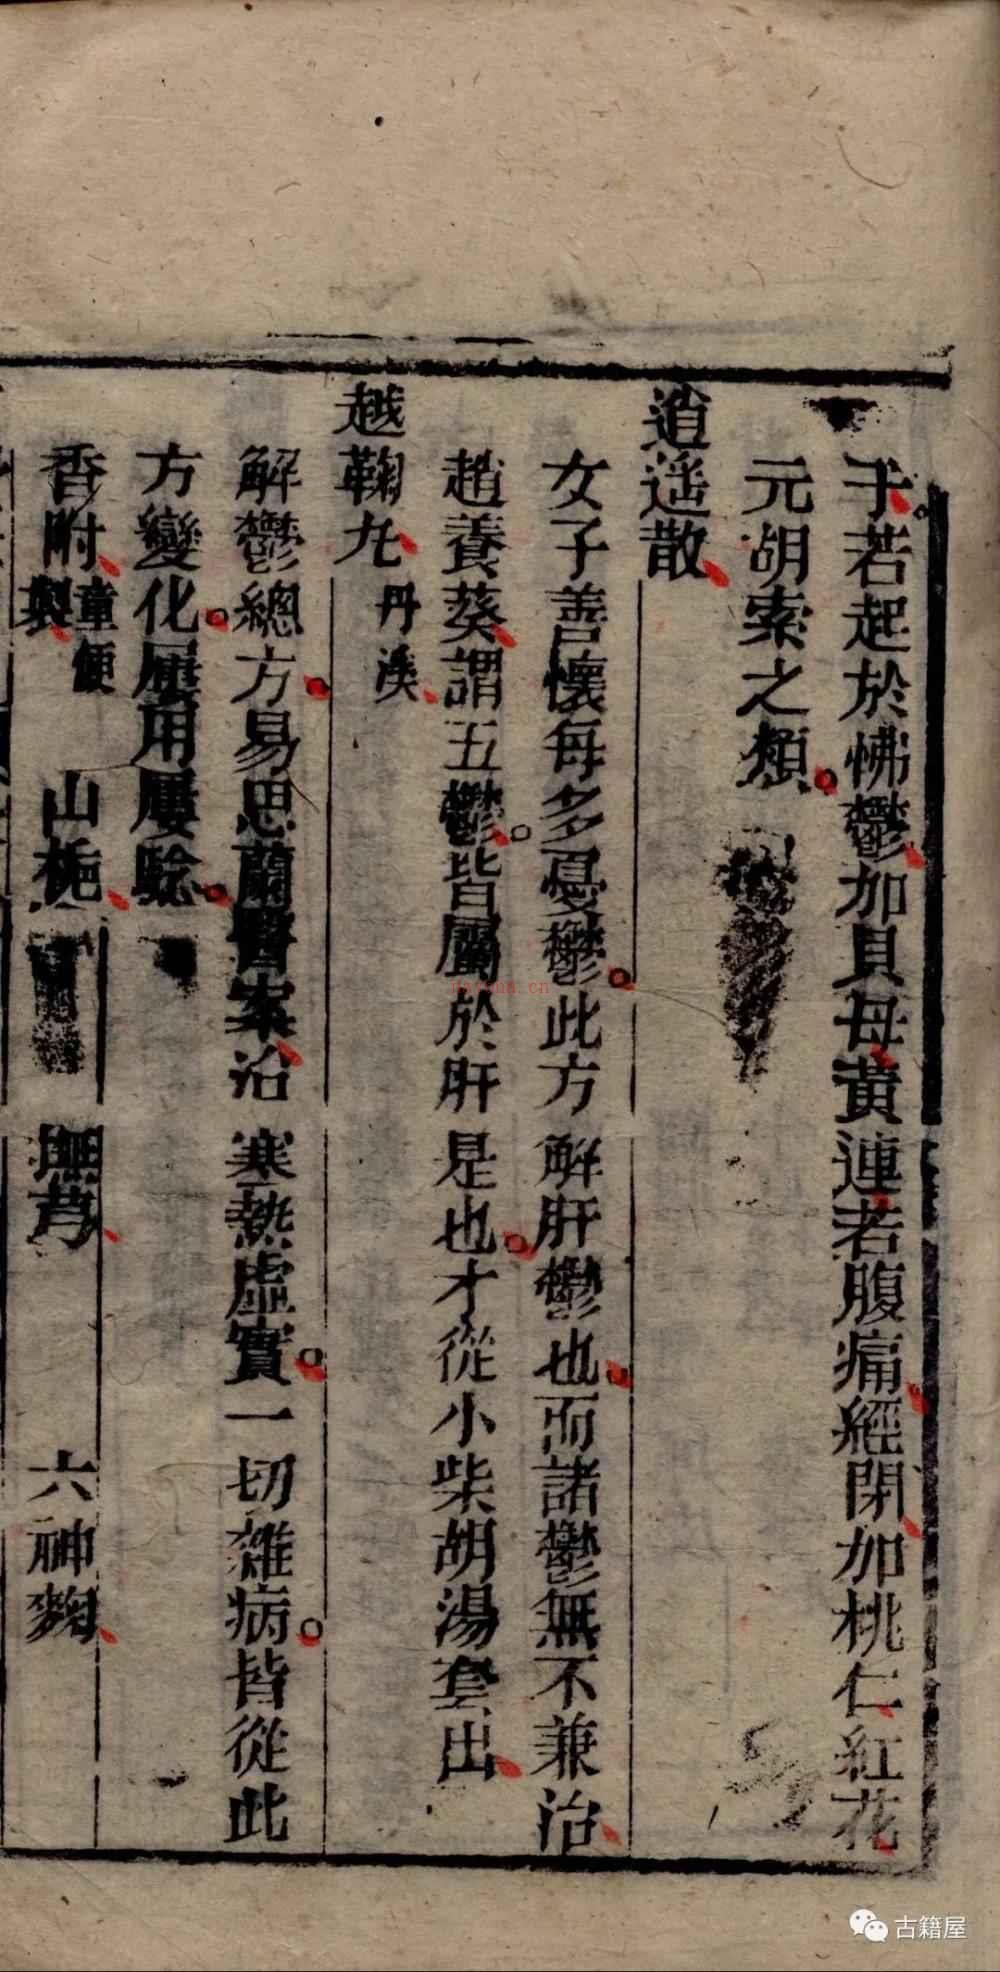 于若起於怫鬱加貝母黃連若腹痛經閉加桃仁紅花
元胡索之類
逍遥散
女子善懷每多憂鬱此方解肝鬱也而諸鬱無不兼治
趙養葵謂五鬱皆屬於肝是也才從小柴胡湯套出
越鞠丸 丹溪
解鬱總方易思蘭醫案治寒熱虛實一切雜病皆從此
方變化屢用屢騐
香附 童便製 山梔 撫芎 六神麴
nayona.cn
古籍屋